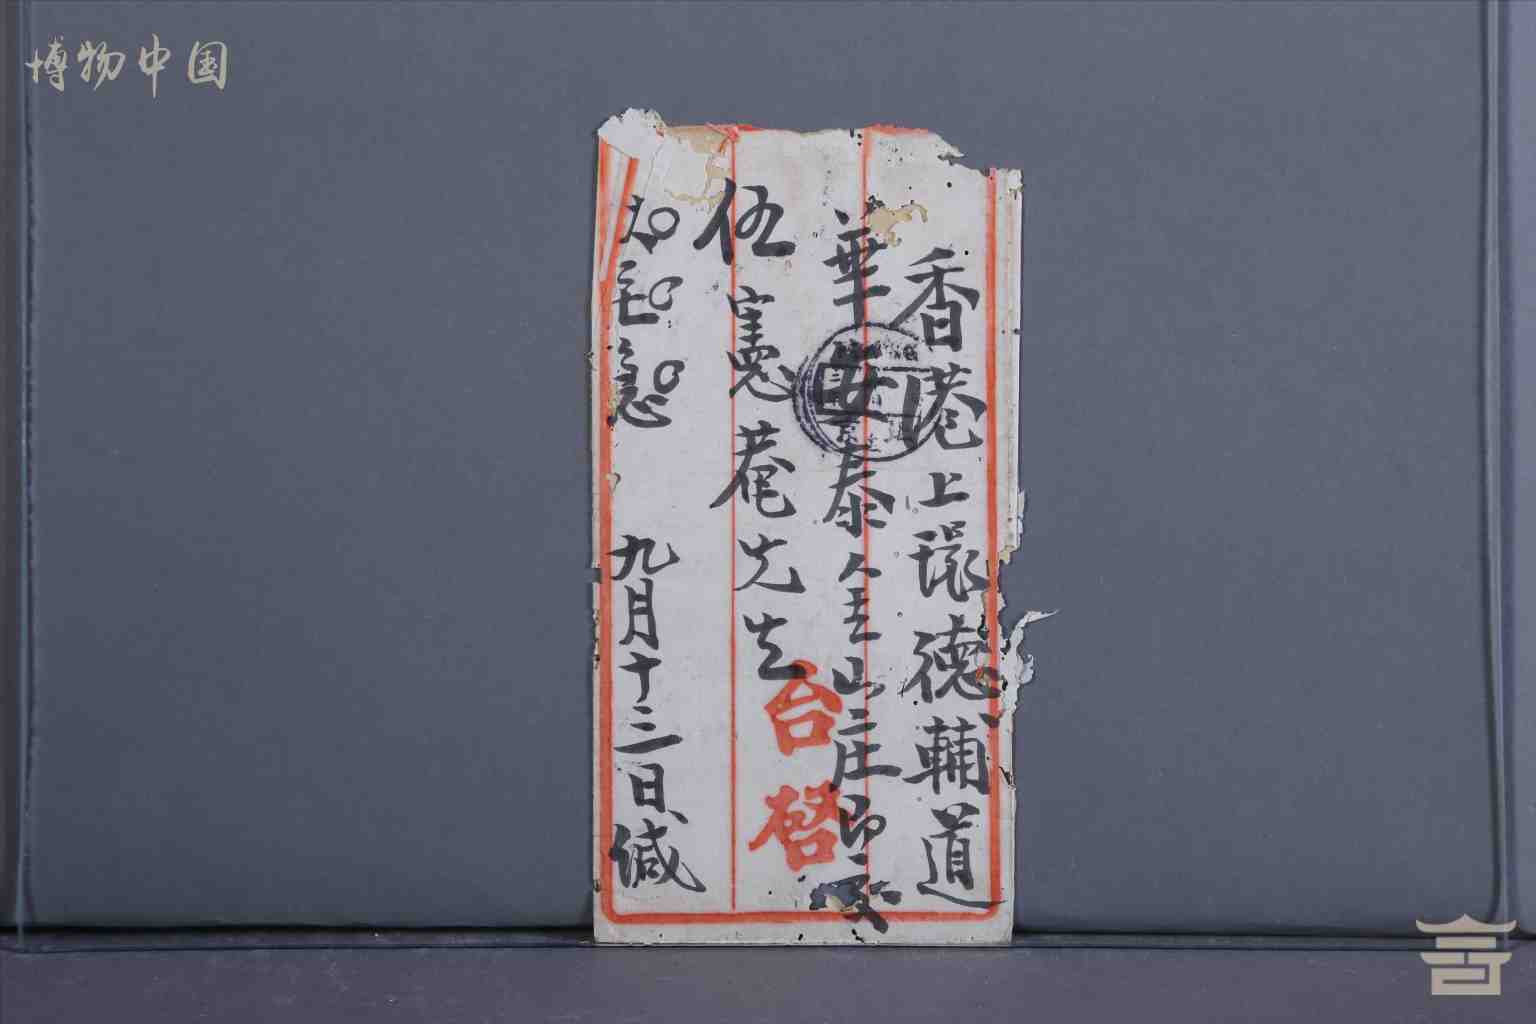 博物中国
香港上環德輔道
華安泰金山庄即交
伍憲菴先生
台啓
九月十三日緘